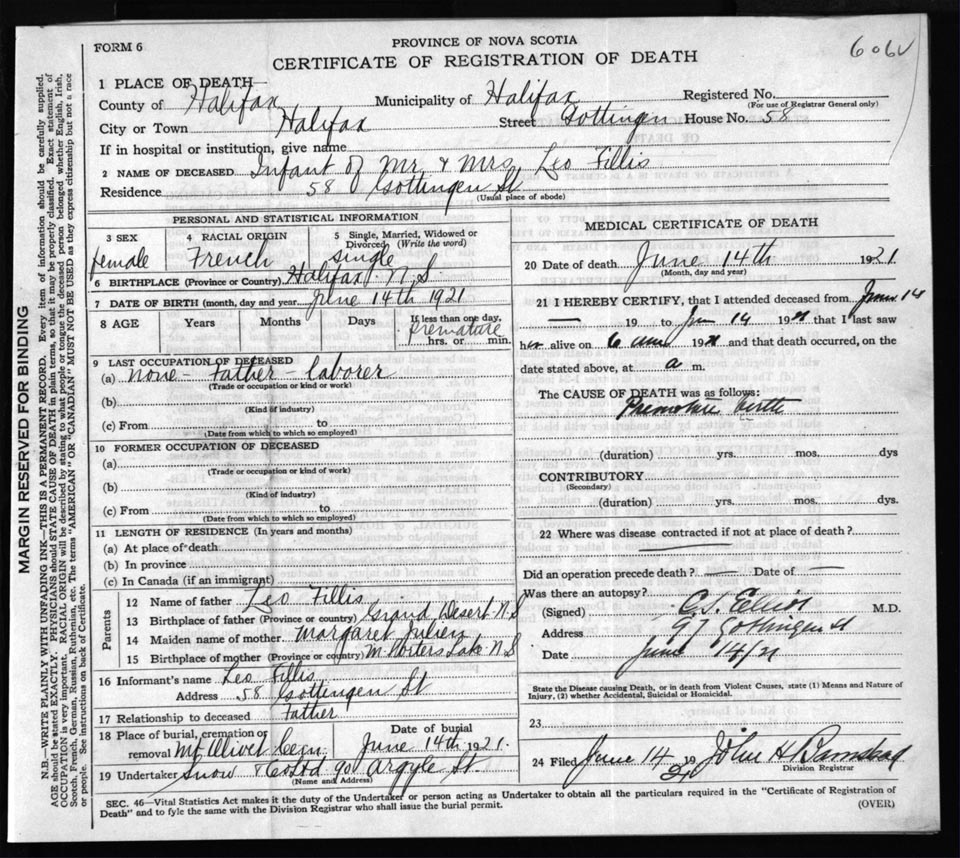 FORM 6
PROVINCE OF NOVA SCOTIA
CERTIFICATE OF REGISTRATION OF DEATH
606
1 PLACE OF DEATH—
County of Halifax Municipality of Halifax Registered No.
(For use of Registrar General only)
City or Town Halifax Street Gottingen House No. 58
If in hospital or institution, give name
2 NAME OF DECEASED Infant of Mr. & Mrs. Leo Fillis
Residence 58 Gottingen St
(Usual place of abode)
PERSONAL AND STATISTICAL INFORMATION
3 SEX 4 RACIAL ORIGIN 5 Single, Married, Widowed or Divorced (Write the word)
female French single
6 BIRTHPLACE (Province or Country) Halifax N.S.
7 DATE OF BIRTH (month, day and year) June 14th 1921
8 AGE Years Months Days If less than one day,
Premature
hrs. or min.
9 LAST OCCUPATION OF DECEASED
(a) none - Father - laborer
(Trade or occupation or kind or work)
(b)
(Kind of industry)
(c) From to
(Date from which to which so employed)
10 FORMER OCCUPATION OF DECEASED
(a)
(Trade or occupation or kind of work)
(b)
(Kind of industry)
(c) From to
(Date from which to which so employed)
11 LENGTH OF RESIDENCE (In years and months)
(a) At place of death
(b) In province
(c) In Canada (if an immigrant)
Parents
12 Name of father Leo Fillis
13 Birthplace of father (Province or country) Grand Desert N.S
14 Maiden name of mother Margaret Julien
15 Birthplace of mother (Province or country) Porters Lake N.S
16 Informant's name Leo Fillis
Address 58 Gottingen St
17 Relationship to deceased Father
18 Place of burial, cremation or removal Mt Olivet Cem
Date of burial June 14th 1921.
19 Undertaker Snow & Co Ltd 90 Argyle St.
(Name and Address)
MEDICAL CERTIFICATE OF DEATH
20 Date of death June 14th 1921
(Month, day and year)
21 I HEREBY CERTIFY, that I attended deceased from June 14
— 19 to Jun 14 1921 that I last saw
her alive on 6 am 1921 and that death occurred, on the
date stated above, at a m.
The CAUSE OF DEATH was as follows:
Premature birth
(duration) yrs. mos. dys
CONTRIBUTORY
(Secondary)
(duration) yrs. mos. dys.
22 Where was disease contracted if not at place of death?
Did an operation precede death? — Date of —
Was there an autopsy?
(Signed) M.D.
Address 97 Gottingen St
Date June 14/21
State the Disease causing Death, or in death from Violent Causes, state (1) Means and Nature of
Injury, (2) whether Accidental, Suicidal or Homicidal.
23
24 Filed June 14 19 21 John H
Division Registrar
SEC. 46—Vital Statistics Act makes it the duty of the Undertaker or person acting as Undertaker to obtain all the particulars required in the "Certificate of Registration of
Death" and to fyle the same with the Division Registrar who shall issue the burial permit.
(OVER)
MARGIN RESERVED FOR BINDING
N.B.—WRITE PLAINLY WITH UNFADING INK—THIS IS A PERMANENT RECORD. Every item of information should be carefully supplied.
AGE should be stated EXACTLY. PHYSICIANS should STATE CAUSE OF DEATH in plain terms, so that it may be properly classified. Exact statement of
OCCUPATION is very important. RACIAL ORIGIN will be described by stating to what people or tongue the deceased person belonged whether English, Irish,
Scotch, French, German, Russian, Ruthenian, etc. The terms "AMERICAN" OR "CANADIAN" MUST NOT BE USED as they express citizenship but not a race
or people. See instructions on back of Certificate.